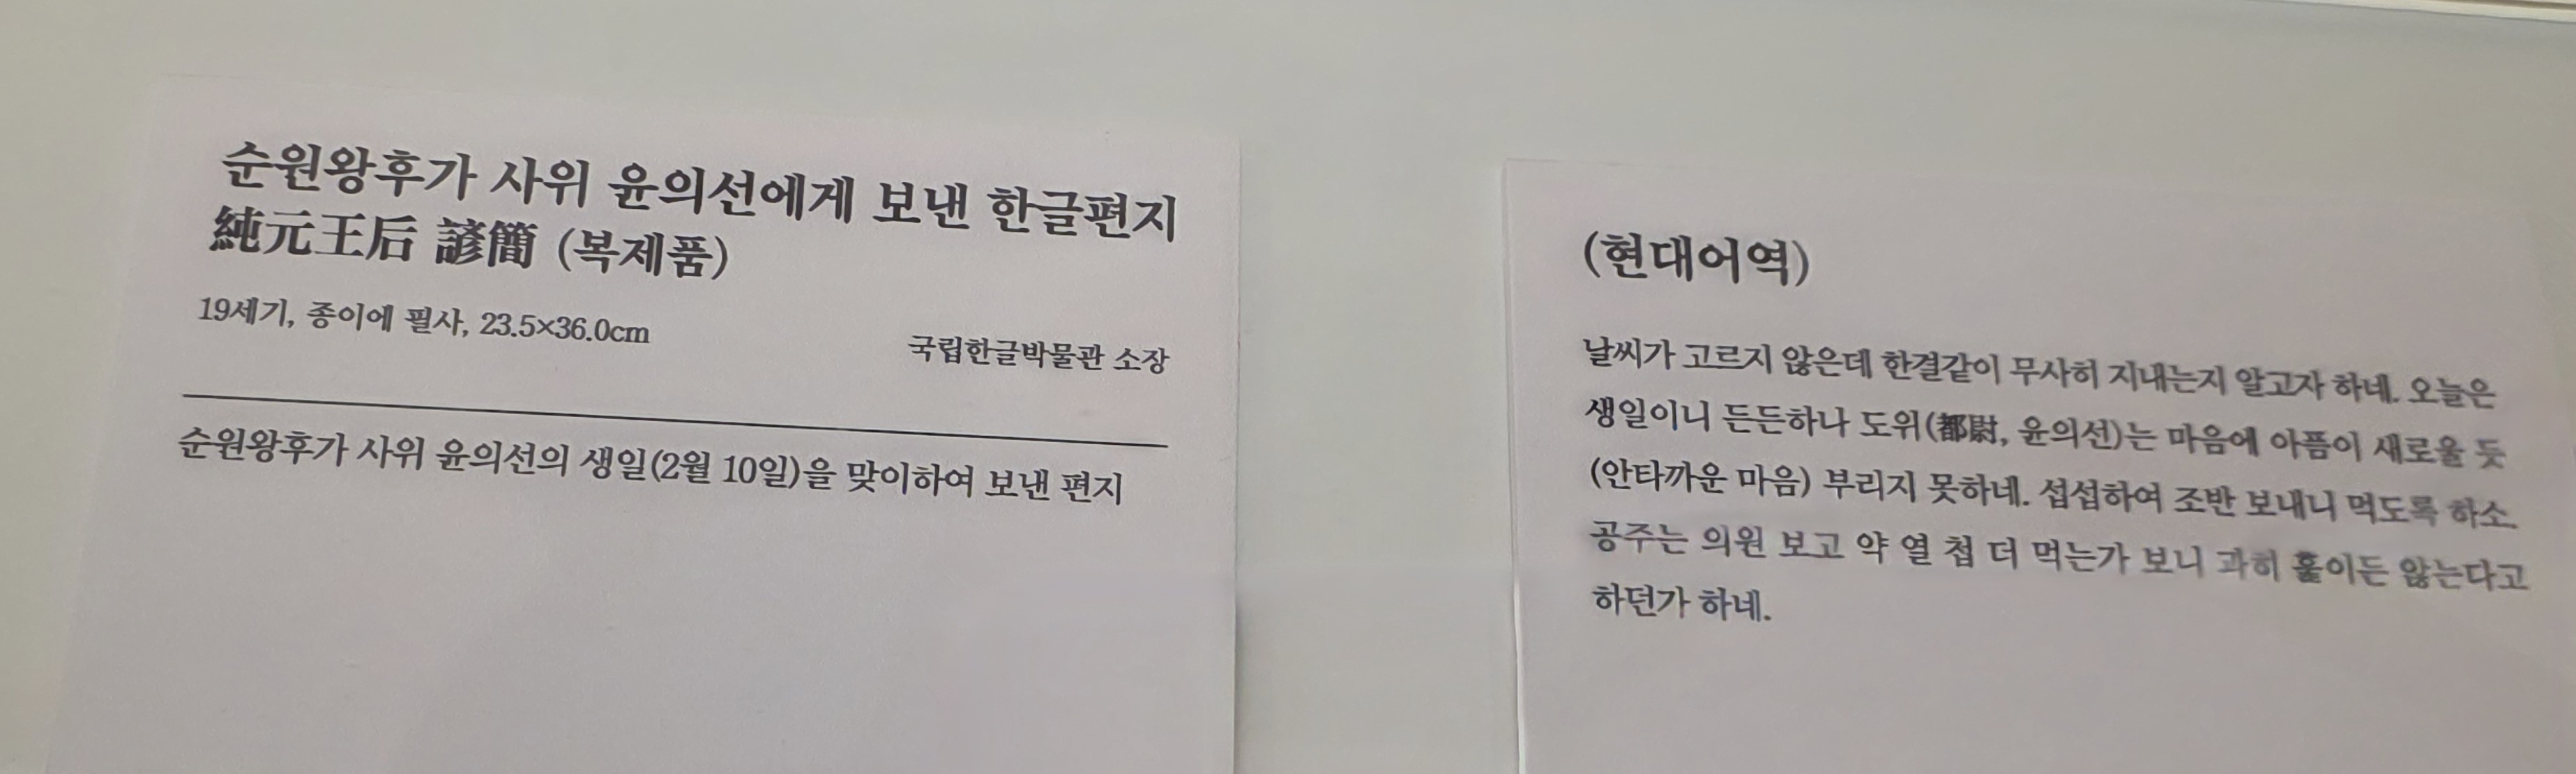 순원왕후가 사위 윤의선에게 보낸 한글편지
純元王后 諺簡 (복제품)
19세기, 종이에 필사, 23.5×36.0cm
국립한글박물관 소장
순원왕후가 사위 윤의선의 생일(2월 10일)을 맞이하여 보낸 편지
(현대어역)
날씨가 고르지 않은데 한결같이 무사히 지내는지 알고자 하네. 오늘은
생일이니 든든하나 도위(都尉, 윤의선)는 마음에 아픔이 새로울 듯
(안타까운 마음) 부리지 못하네. 섭섭하여 조반 보내니 먹도록 하소.
공주는 의원 보고 약 열 첩 더 먹는가 보니 과히 않는다고
하던가 하네.